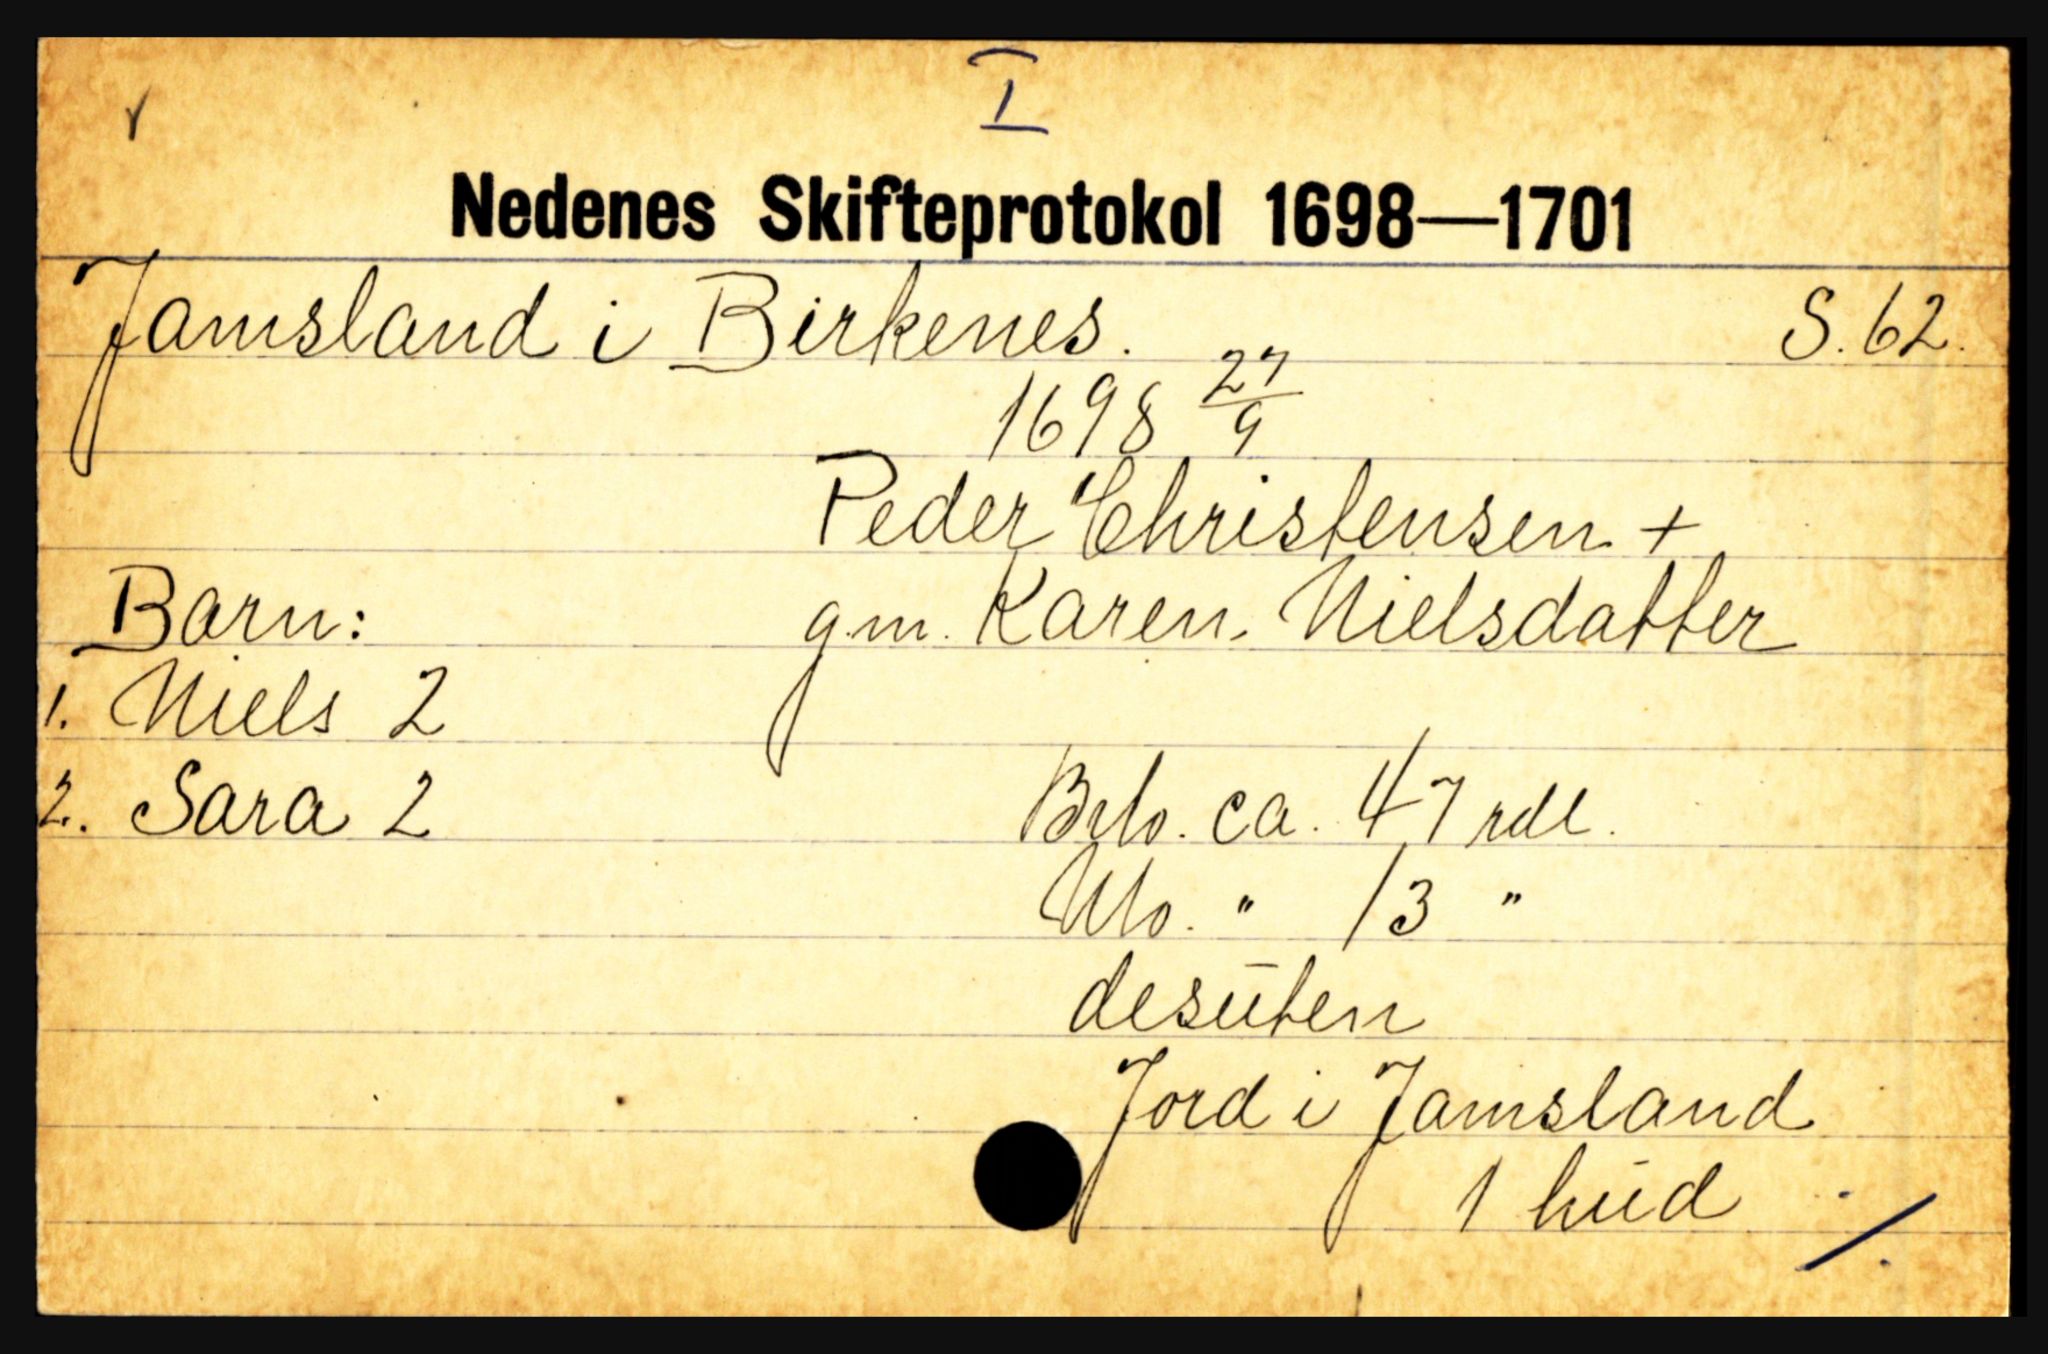 I
Nedenes Skifteprotokol 1698—1701
Jamsland i Birkenes. S. 62.
1698 27/9
Peder Christensen +
Barn: gm. Karen Nielsdatter
1. Niels 2
2. Sara 2 Brto. ca. 47 rdl.
Nto. " 13 "
desuten
Jord i Jamsland
1 hud